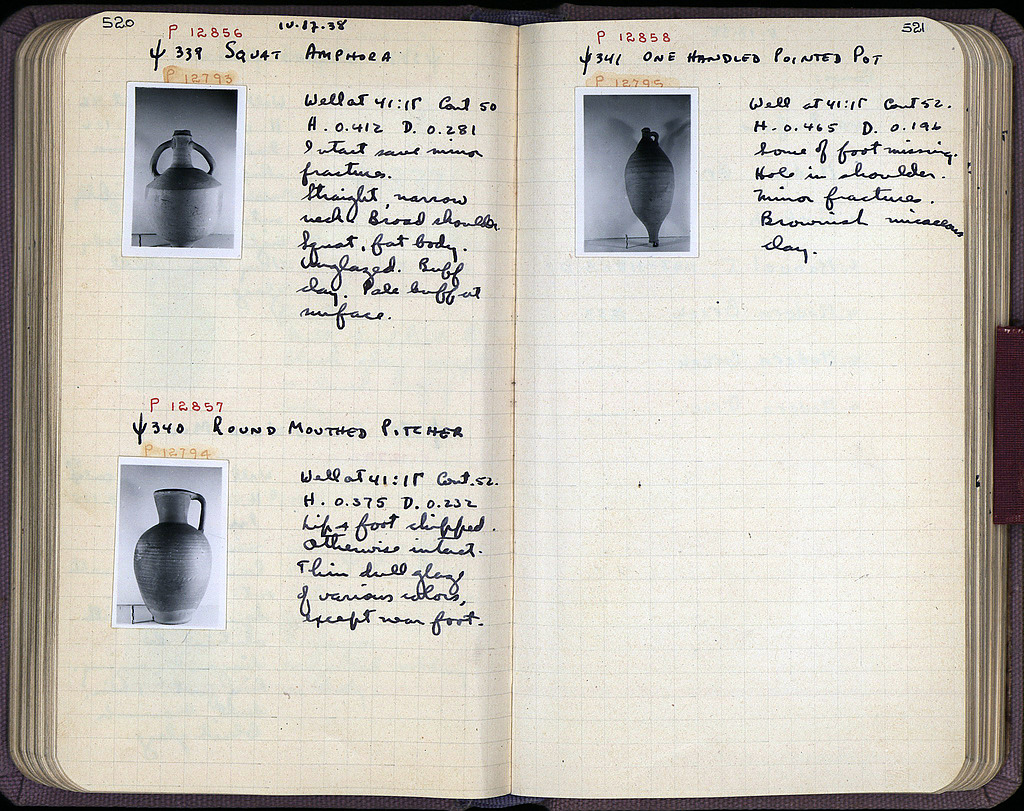 520
P 12856
10.17.38
ψ 339 SQUAT AMPHORA
P 12793
Well at 41:ΙΓ Cont 50
H. 0.412 D. 0.281
Intact save minor
fractures.
Straight, narrow
neck. Broad shoulder.
Squat, fat body.
Unglazed. Buff
clay. Pale buff at
surface.
P 12857
ψ 340 ROUND MOUTHED PITCHER
P 12794
Well at 41:ΙΓ Cont. 52.
H. 0.375 D. 0.232
Lip & foot chipped.
Otherwise intact.
Thin dull glaze
of various colors,
except near foot.
521
P 12858
ψ 341 ONE HANDLED POINTED POT
P 12795
Well at 41:ΙΓ Cont 52.
H. 0.465 D. 0.196
Some of foot missing.
Hole in shoulder.
Minor fractures.
Brownish micaceous
clay.